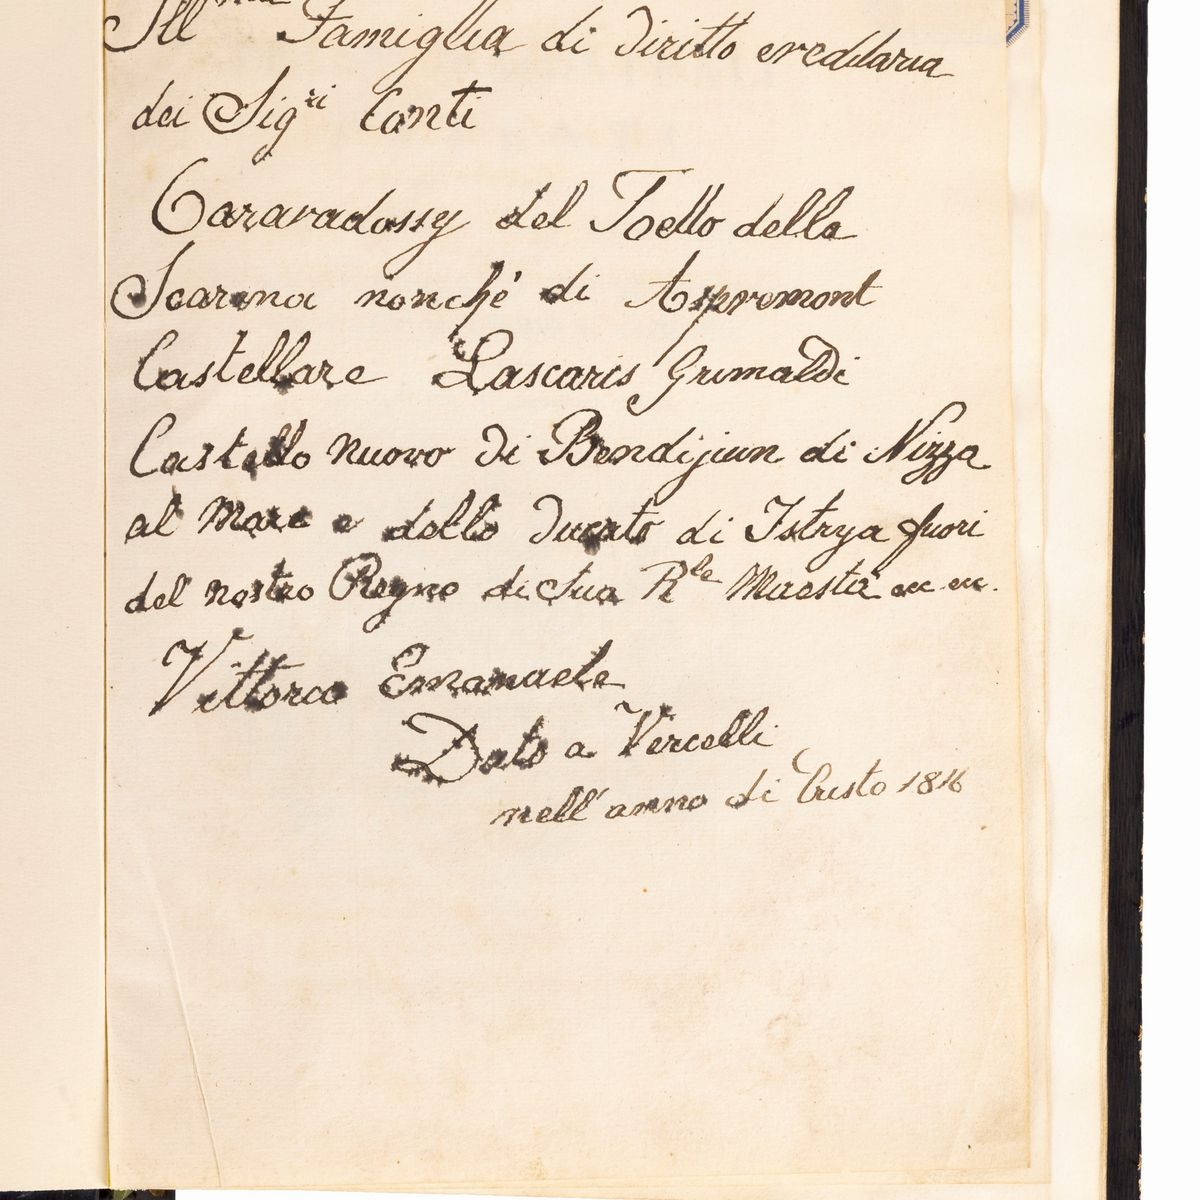 Ill^ma Famiglia di diritto ereddaria
dei Sig^ri Conti
Caravadossy del Toello della
Scarena nonchè di Aspremont
Castellare Lascaris Grimaldi
Castello nuovo di Bendijiun di Nizza
al Mare e dello Ducato di Istrya fuori
del nostro Regno di Sua R^le Maestà
Vittorio Emanuele
Dato a Vercelli
nell'anno di Cristo 1816